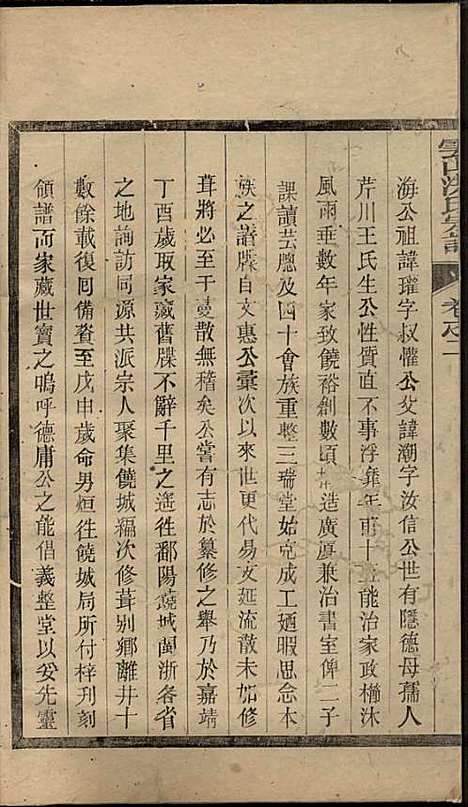 海公祖諱瓘字叔懽公父諱潮字汝信公世有隱德母孺人
芹川王氏生公性質直不事浮靡年甫十能治家政櫛沐
風雨垂數年家致饒裕創數頃造廣厦兼治書室俾二子
課讀芸牕及四十會族重整三瑞堂始克成工廼暇思念本
族之譜牒自文惠公彙次以來世更代易支延流散未如修
葺將必至于蔓散無稽矣公嘗有志於纂修之舉乃於嘉靖
丁酉歲取家藏舊牒不辭千里之遙徃鄱陽饒城閩浙各省
之地詢訪同源共派宗人聚集饒城編次修葺别鄉離井十
數餘載復囘備資至戊申歲命男烜徃饒城局所付梓刋刻
領譜而家藏世寶之嗚呼德庸公之能倡義整堂以妥先靈